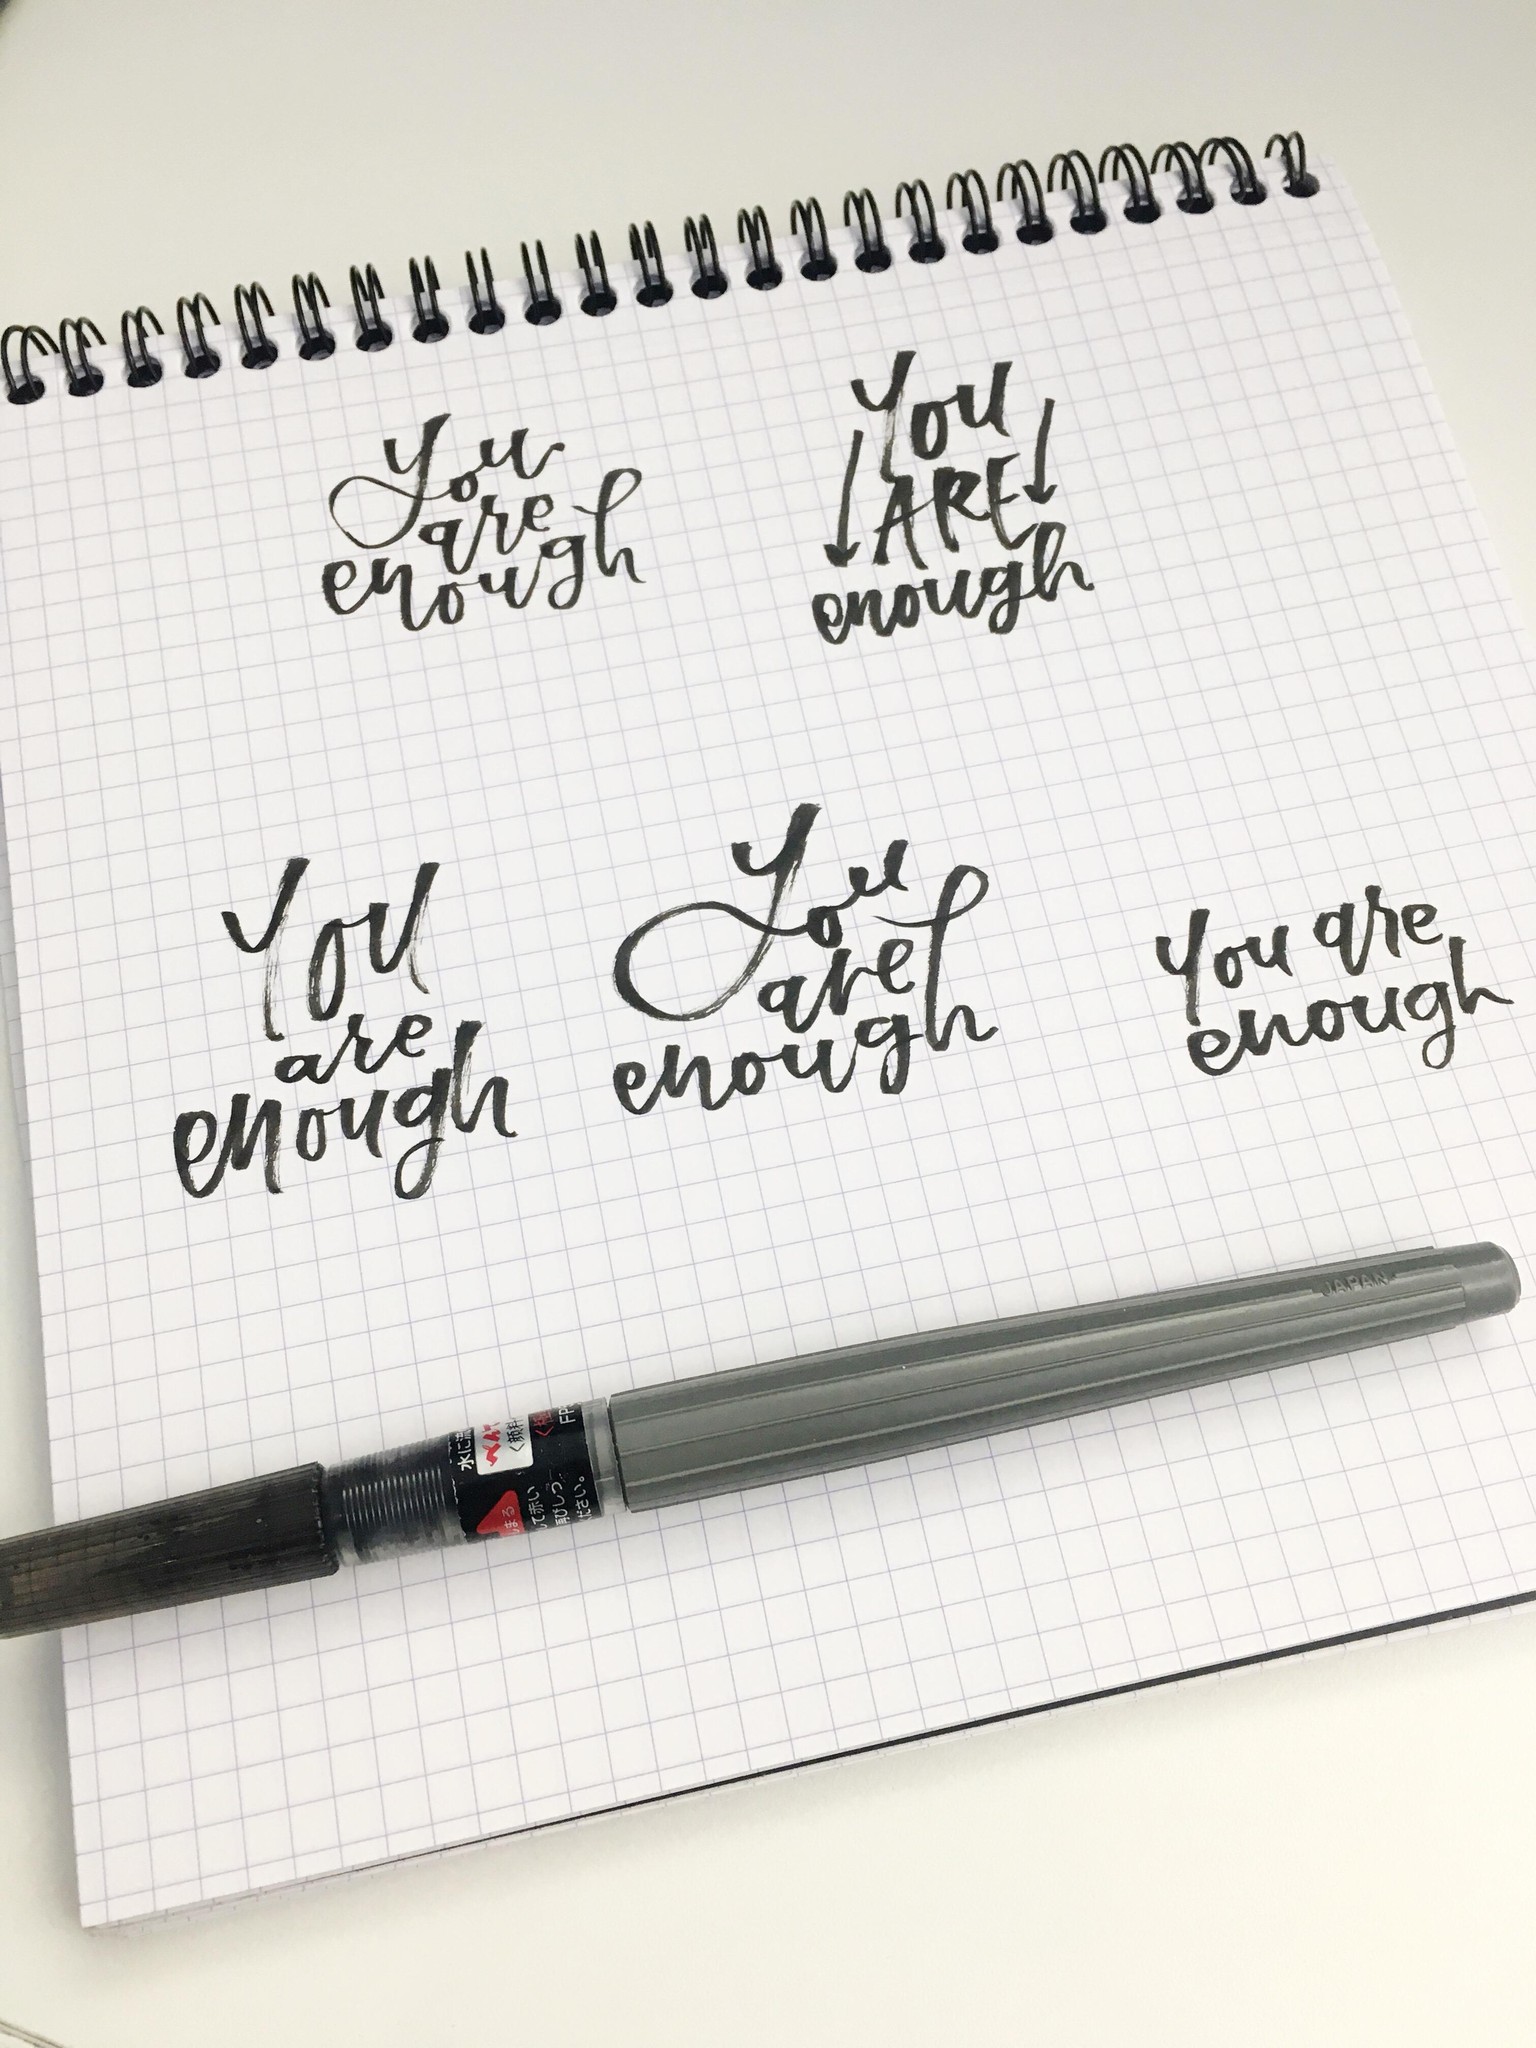 You
are
enough
You
ARE
enough
You
are
enough
You
are
enough
You are
enough
JAPAN
水に流
ぺんて
<顔料
FP
て赤い
再びしつ
ださい。
まる